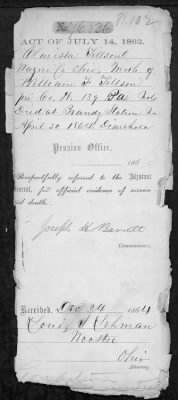 91.102
No. 76,536
ACT OF JULY 14, 1862.
Clarissa Tillson
Wayne Co Ohio, Moth. of
William F Tillson
pri Co. H. 139 Pa Vols
Died at Brandy Station Va
April 30 1864 Diarrhoea
Pension Office,
186
Respectfully referred to the Adjutant
General, for official evidence of service
and death.
Joseph H Barrett
Commissioner.
Received, Dec 24 1864
Louis S Lehman
Wooster
Ohio
Attorney.